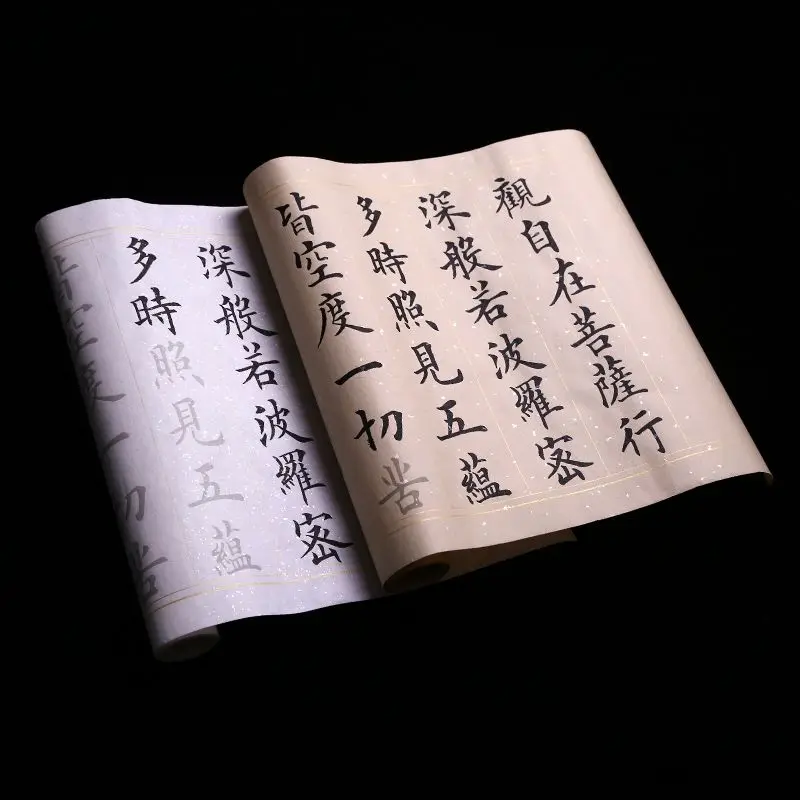 觀自在菩薩行
深般若波羅密
多時照見五蘊
皆空度一切苦
深般若波羅密
多時照見五蘊
皆空度一切苦